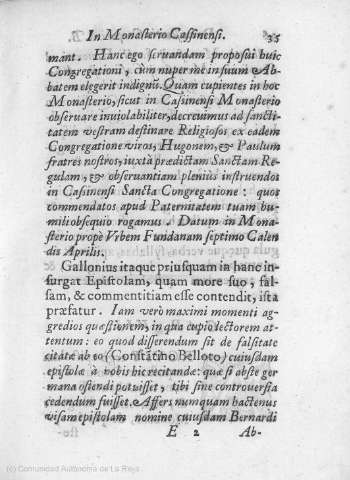 In Monasterio Cassinensi. 35
mant. Hanc ego seruandam proposui huic
Congregationi, cùm nuper me in suum Ab-
batem elegerit indignũ. Quam cupientes in hoc
Monasterio, sicut in Cassinensi Monasterio
obseruare inuiolabiliter, decreuimus ad sancti-
tatem vestram destinare Religiosos ex eadem
Congregatione viros, Hugonem, & Paulum
fratres nostros, iuxtà prædictam Sanctam Re-
gulam, & obseruantiam pleniùs instruendos
in Casinensi Sancta Congregatione: quos
commendatos apud Paternitatem tuam hu-
mili obsequio rogamus. Datum in Mona-
sterio propè Vrbem Fundanam septimo Calen
dis Aprilis.
Gallonius itaque priusquam in hanc in-
surgat Epistolam, quam more suo, fal-
sam, & commentitiam esse contendit, ista
præfatur. Iam verò maximi momenti ag-
gredior quæstionem, in qua cupio lectorem at-
tentum: eo quod disserendum sit de falsitate
citatæ ab eo (Constãtino Belloto) cuiusdam
epistolæ à vobis hic recitandæ: quæ si abs te ger
mana ostendi potuisset, tibi sine controuersia
cedendum fuisset. Affers nunquam hactenus
visam epistolam nomine cuiusdam Bernardi
E 2 Ab-
(c) Comunidad Autónoma de La Rioja